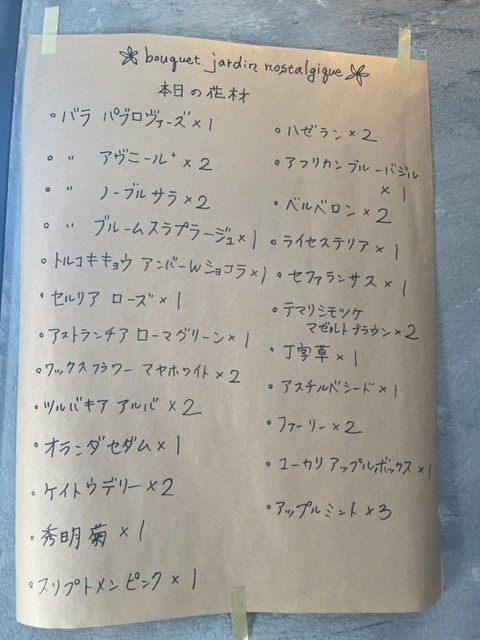 bouquet jardin nostalgique
本日の花材
・バラ パブロヴァーズ×1
・〃 アヴニール+×2
・〃 ノーブルサラ×2
・〃 ブルームスラプラージュ×1
・トルコキキョウ アンバーWショコラ×1
・セルリア ローズ×1
・アストランチア ローマグリーン×1
・ワックスフラワー マヤホワイト×2
・ツルバキア アルバ×2
・オランダセダム×1
・ケイトウデリー×2
・秀明菊×1
・スリプトメン ピンク×1
・ハゼラン×2
・アフリカンブルーバジル
×1
・ベルベロン×2
・ライセステリア×1
・セファランサス×1
・テマリシモツケ
マゼルトブラウン×2
・丁字草×1
・アスチルベシード×1
・ファーリー×2
・ユーカリアップルボックス×1
・アップルミント×3